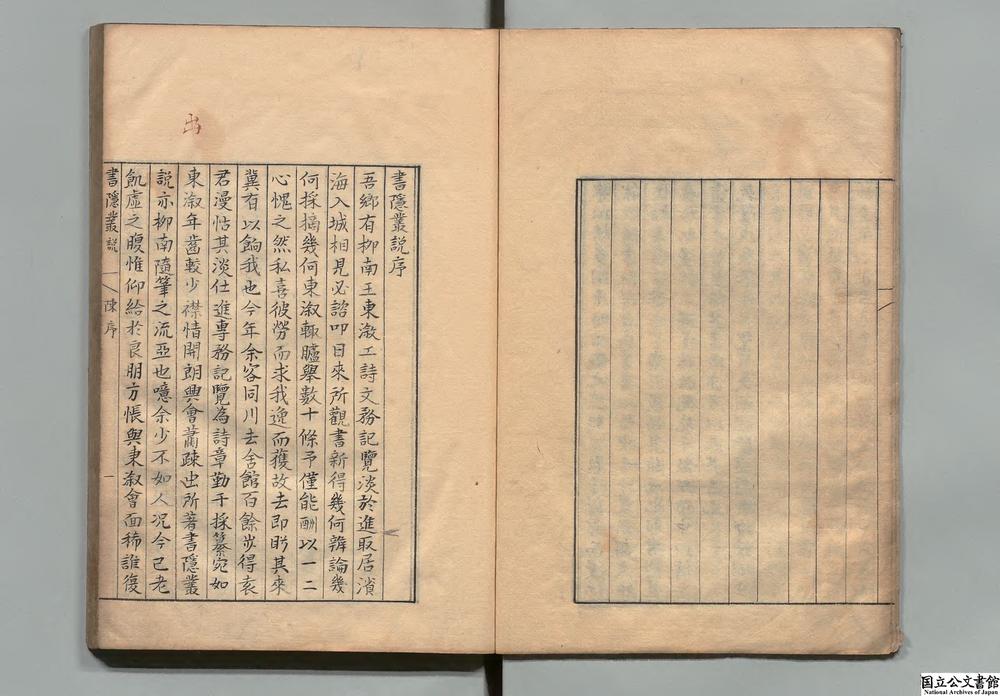 書隱叢說序
吾鄉有柳南王東漵工詩文務記覽淡於進取居濵
海入城相見必詣叩日來所觀書新得幾何辨論幾
何採摘幾何東淑輙臚舉數十條予僅能酬以一二
心愧之然私喜彼勞而求我逸而獲故去即盻其來
冀有以餉我也今年余客同川去舍館百餘步得袁
君漫恬其淡仕進專務記覽為詩章勤于採纂宛如
東淑年齒較少襟情開朗興會蕭疎出所著書隱叢
說亦柳南隨筆之流亞也噫余少不如人况今已老
飢虛之腹惟仰給於良朋方悵與東淑會面稀誰復
書隱叢說 陳序 一
国立公文書館
National Archives of Japan